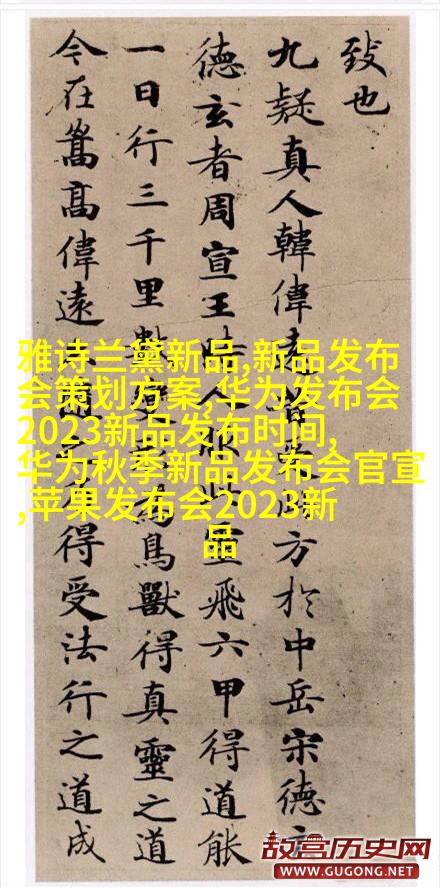 致也
九疑真人韓偉方於中岳宋德
德玄者周宣王人靈飛六甲得道能
一日行三千里鳥獸得真靈之道
今在嵩高偉遠得受法行之道成
雅诗兰黛新品,新品发布
会策划方案,华为发布会
2023新品发布时间,
华为秋季新品发布会官宣
,苹果发布会2023新
品
故宫历史网
WWW.GUGONG.NET